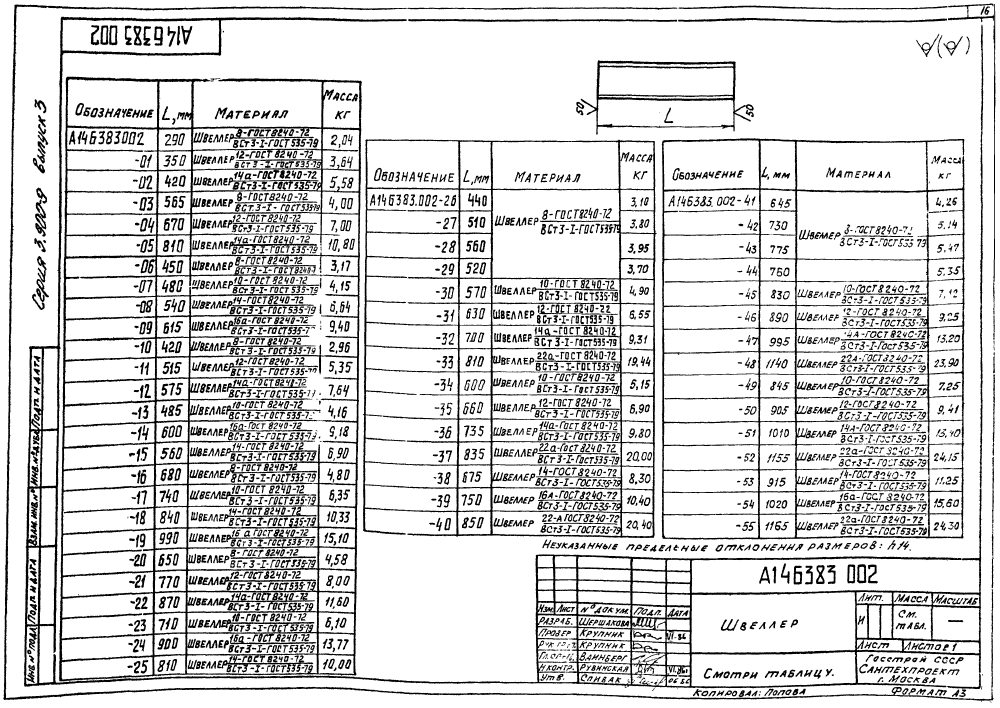 16
А146383 002
Серия 3.900-9 выпуск 3
50
L
50
Обозначение L, мм Материал Масса кг
А146383.002 290 Швеллер 8-ГОСТ 8240-72 / ВСт3-I-ГОСТ 535-79 2,04
-01 350 Швеллер 12-ГОСТ 8240-72 / ВСт3-I-ГОСТ 535-79 3,64
-02 420 Швеллер 14а-ГОСТ 8240-72 / ВСт3-I-ГОСТ 535-79 5,58
-03 565 Швеллер 8-ГОСТ 8240-72 / ВСт3-I-ГОСТ 535-79 4,00
-04 670 Швеллер 12-ГОСТ 8240-72 / ВСт3-I-ГОСТ 535-79 7,00
-05 810 Швеллер 14а-ГОСТ 8240-72 / ВСт3-I-ГОСТ 535-79 10,80
-06 450 Швеллер 8-ГОСТ 8240-72 3,17
-07 480 Швеллер 10-ГОСТ 8240-72 / ВСт3-I-ГОСТ 535-79 4,15
-08 540 Швеллер 14-ГОСТ 8240-72 / ВСт3-I-ГОСТ 535-79 6,64
-09 615 Швеллер 16а-ГОСТ 8240-72 9,40
-10 420 Швеллер 8-ГОСТ 8240-72 / ВСт3-I-ГОСТ 535-79 2,96
-11 515 Швеллер 12-ГОСТ 8240-72 / ВСт3-I-ГОСТ 535-79 5,35
-12 575 Швеллер 14а-ГОСТ 8240-72 / ВСт3-I-ГОСТ 535-79 7,64
-13 485 Швеллер 10-ГОСТ 8240-72 / ВСт3-I-ГОСТ 535-79 4,16
-14 600 Швеллер 16а-ГОСТ 8240-72 / ВСт3-I-ГОСТ 535-79 9,18
-15 560 Швеллер 14-ГОСТ 8240-72 / ВСт3-I-ГОСТ 535-79 6,90
-16 680 Швеллер 8-ГОСТ 8240-72 / ВСт3-I-ГОСТ 535-79 4,80
-17 740 Швеллер 10-ГОСТ 8240-72 / ВСт3-I-ГОСТ 535-79 6,35
-18 840 Швеллер 14-ГОСТ 8240-72 / ВСт3-I-ГОСТ 535-79 10,33
-19 990 Швеллер 16а-ГОСТ 8240-72 / ВСт3-I-ГОСТ 535-79 15,10
-20 650 Швеллер 8-ГОСТ 8240-72 / ВСт3-I-ГОСТ 535-79 4,58
-21 770 Швеллер 12-ГОСТ 8240-72 / ВСт3-I-ГОСТ 535-79 8,00
-22 870 Швеллер 14а-ГОСТ 8240-72 / ВСт3-I-ГОСТ 535-79 11,60
-23 710 Швеллер 10-ГОСТ 8240-72 / ВСт3-I-ГОСТ 535-79 6,10
-24 900 Швеллер 16а-ГОСТ 8240-72 / ВСт3-I-ГОСТ 535-79 13,77
-25 810 Швеллер 14-ГОСТ 8240-72 / ВСт3-I-ГОСТ 535-79 10,00
Обозначение L, мм Материал Масса кг
А146383.002-26 440 3,10
-27 510 Швеллер 8-ГОСТ 8240-72 / ВСт3-I-ГОСТ 535-79 3,80
-28 560 3,95
-29 520 3,70
-30 570 Швеллер 10-ГОСТ 8240-72 / ВСт3-I-ГОСТ 535-79 4,90
-31 630 Швеллер 12-ГОСТ 8240-22 / ВСт3-I-ГОСТ 535-79 6,55
-32 700 Швеллер 14а-ГОСТ 8240-72 / ВСт3-I-ГОСТ 535-79 9,31
-33 810 Швеллер 22а-ГОСТ 8240-72 / ВСт3-I-ГОСТ 535-79 19,44
-34 600 Швеллер 10-ГОСТ 8240-72 / ВСт3-I-ГОСТ 535-79 5,15
-35 660 Швеллер 12-ГОСТ 8240-72 / ВСт3-I-ГОСТ 535-79 6,90
-36 735 Швеллер 14а-ГОСТ 8240-72 / ВСт3-I-ГОСТ 535-79 9,80
-37 835 Швеллер 22а-ГОСТ 8240-72 / ВСт3-I-ГОСТ 535-79 20,00
-38 675 Швеллер 14-ГОСТ 8240-72 / ВСт3-I-ГОСТ 535-79 8,30
-39 750 Швеллер 16А-ГОСТ 8240-72 / ВСт3-I-ГОСТ 535-79 10,40
-40 850 Швеллер 22-А ГОСТ 8240-72 / ВСт3-I-ГОСТ 535-79 20,40
Обозначение L, мм Материал Масса кг
А146383.002-41 645 4,26
-42 730 Швеллер 8-ГОСТ 8240-72 / ВСт3-I-ГОСТ 535 79 5,14
-43 775 5,47
-44 760 5,35
-45 830 Швеллер 10-ГОСТ 8240-72 / ВСт3-I-ГОСТ 535-79
-46 890 Швеллер 12-ГОСТ 8240-72 / ВСт3-I-ГОСТ 535-79 9,25
-47 995 Швеллер 14А-ГОСТ 8240-72 / ВСт3-I-ГОСТ 535-79 13,20
-48 1140 Швеллер 22А-ГОСТ 8240-72 / ВСт3-I-ГОСТ 535-79 23,90
-49 845 Швеллер 10-ГОСТ 8240-72 / ВСт3-I-ГОСТ 535-79 7,25
-50 905 Швеллер 12-ГОСТ 8240-72 / ВСт3-I-ГОСТ 535-79 9,41
-51 1010 Швеллер 14А-ГОСТ 8240-72 / ВСт3-I-ГОСТ 535-79
-52 1155 Швеллер 22а-ГОСТ 8240-72 / ВСт3-I-ГОСТ 535-79 24,15
-53 915 Швеллер 14-ГОСТ 8240-72 / ВСт3-I-ГОСТ 535-79 11,25
-54 1020 Швеллер 16а-ГОСТ 8240-72 / ВСт3-I-ГОСТ 535-79 15,60
-55 1165 Швеллер 22а-ГОСТ 8240-72 / ВСт3-I-ГОСТ 535-79 24,30
Неуказанные предельные отклонения размеров: h14.
А146383 002
Изм Лист № докум. Подп. Дата
Разраб. Шершакова
Провер Крупник VI-86
Крупник
Вайнберг
Н.контр. Рувинская VI.86
Утв. Спивак
Швеллер
Смотри таблицу.
Лит. Масса Масштаб
И См. табл. —
Лист Листов 1
Госстрой СССР
Сантехпроект
г. Москва
Копировал: Попова Формат А3
Инв. № подл. Подп. и дата Взам. инв. № Инв. № дубл. Подп. и дата